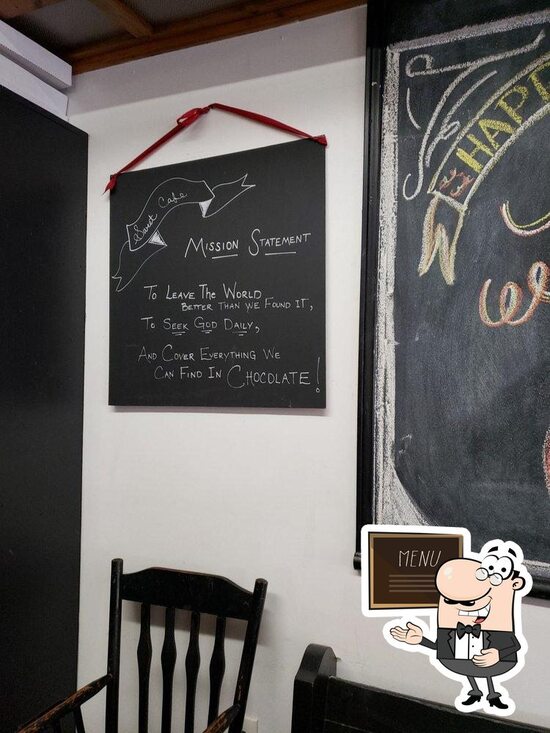 Sweet Cafe
MISSION STATEMENT
TO LEAVE THE WORLD
BETTER THAN WE FOUND IT,
TO SEEK GOD DAILY,
AND COVER EVERYTHING WE
CAN FIND IN CHOCOLATE!
HAPP
MENU